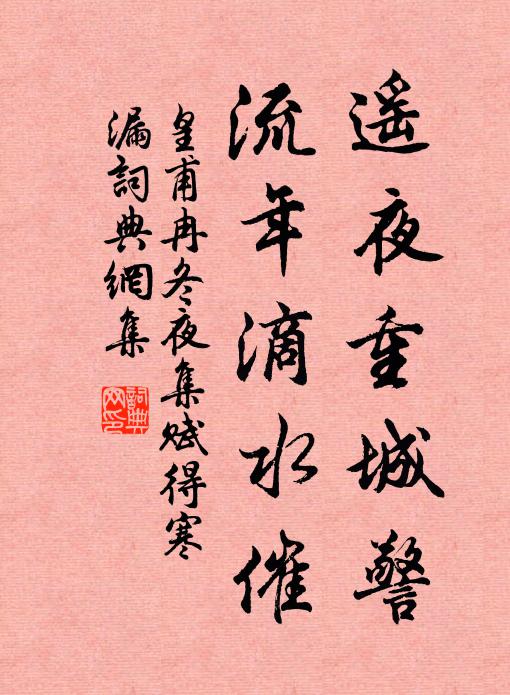 遥夜重城警
流年滴水催
皇甫冉冬夜集赋得寒
漏詞典網集
詞典
网印